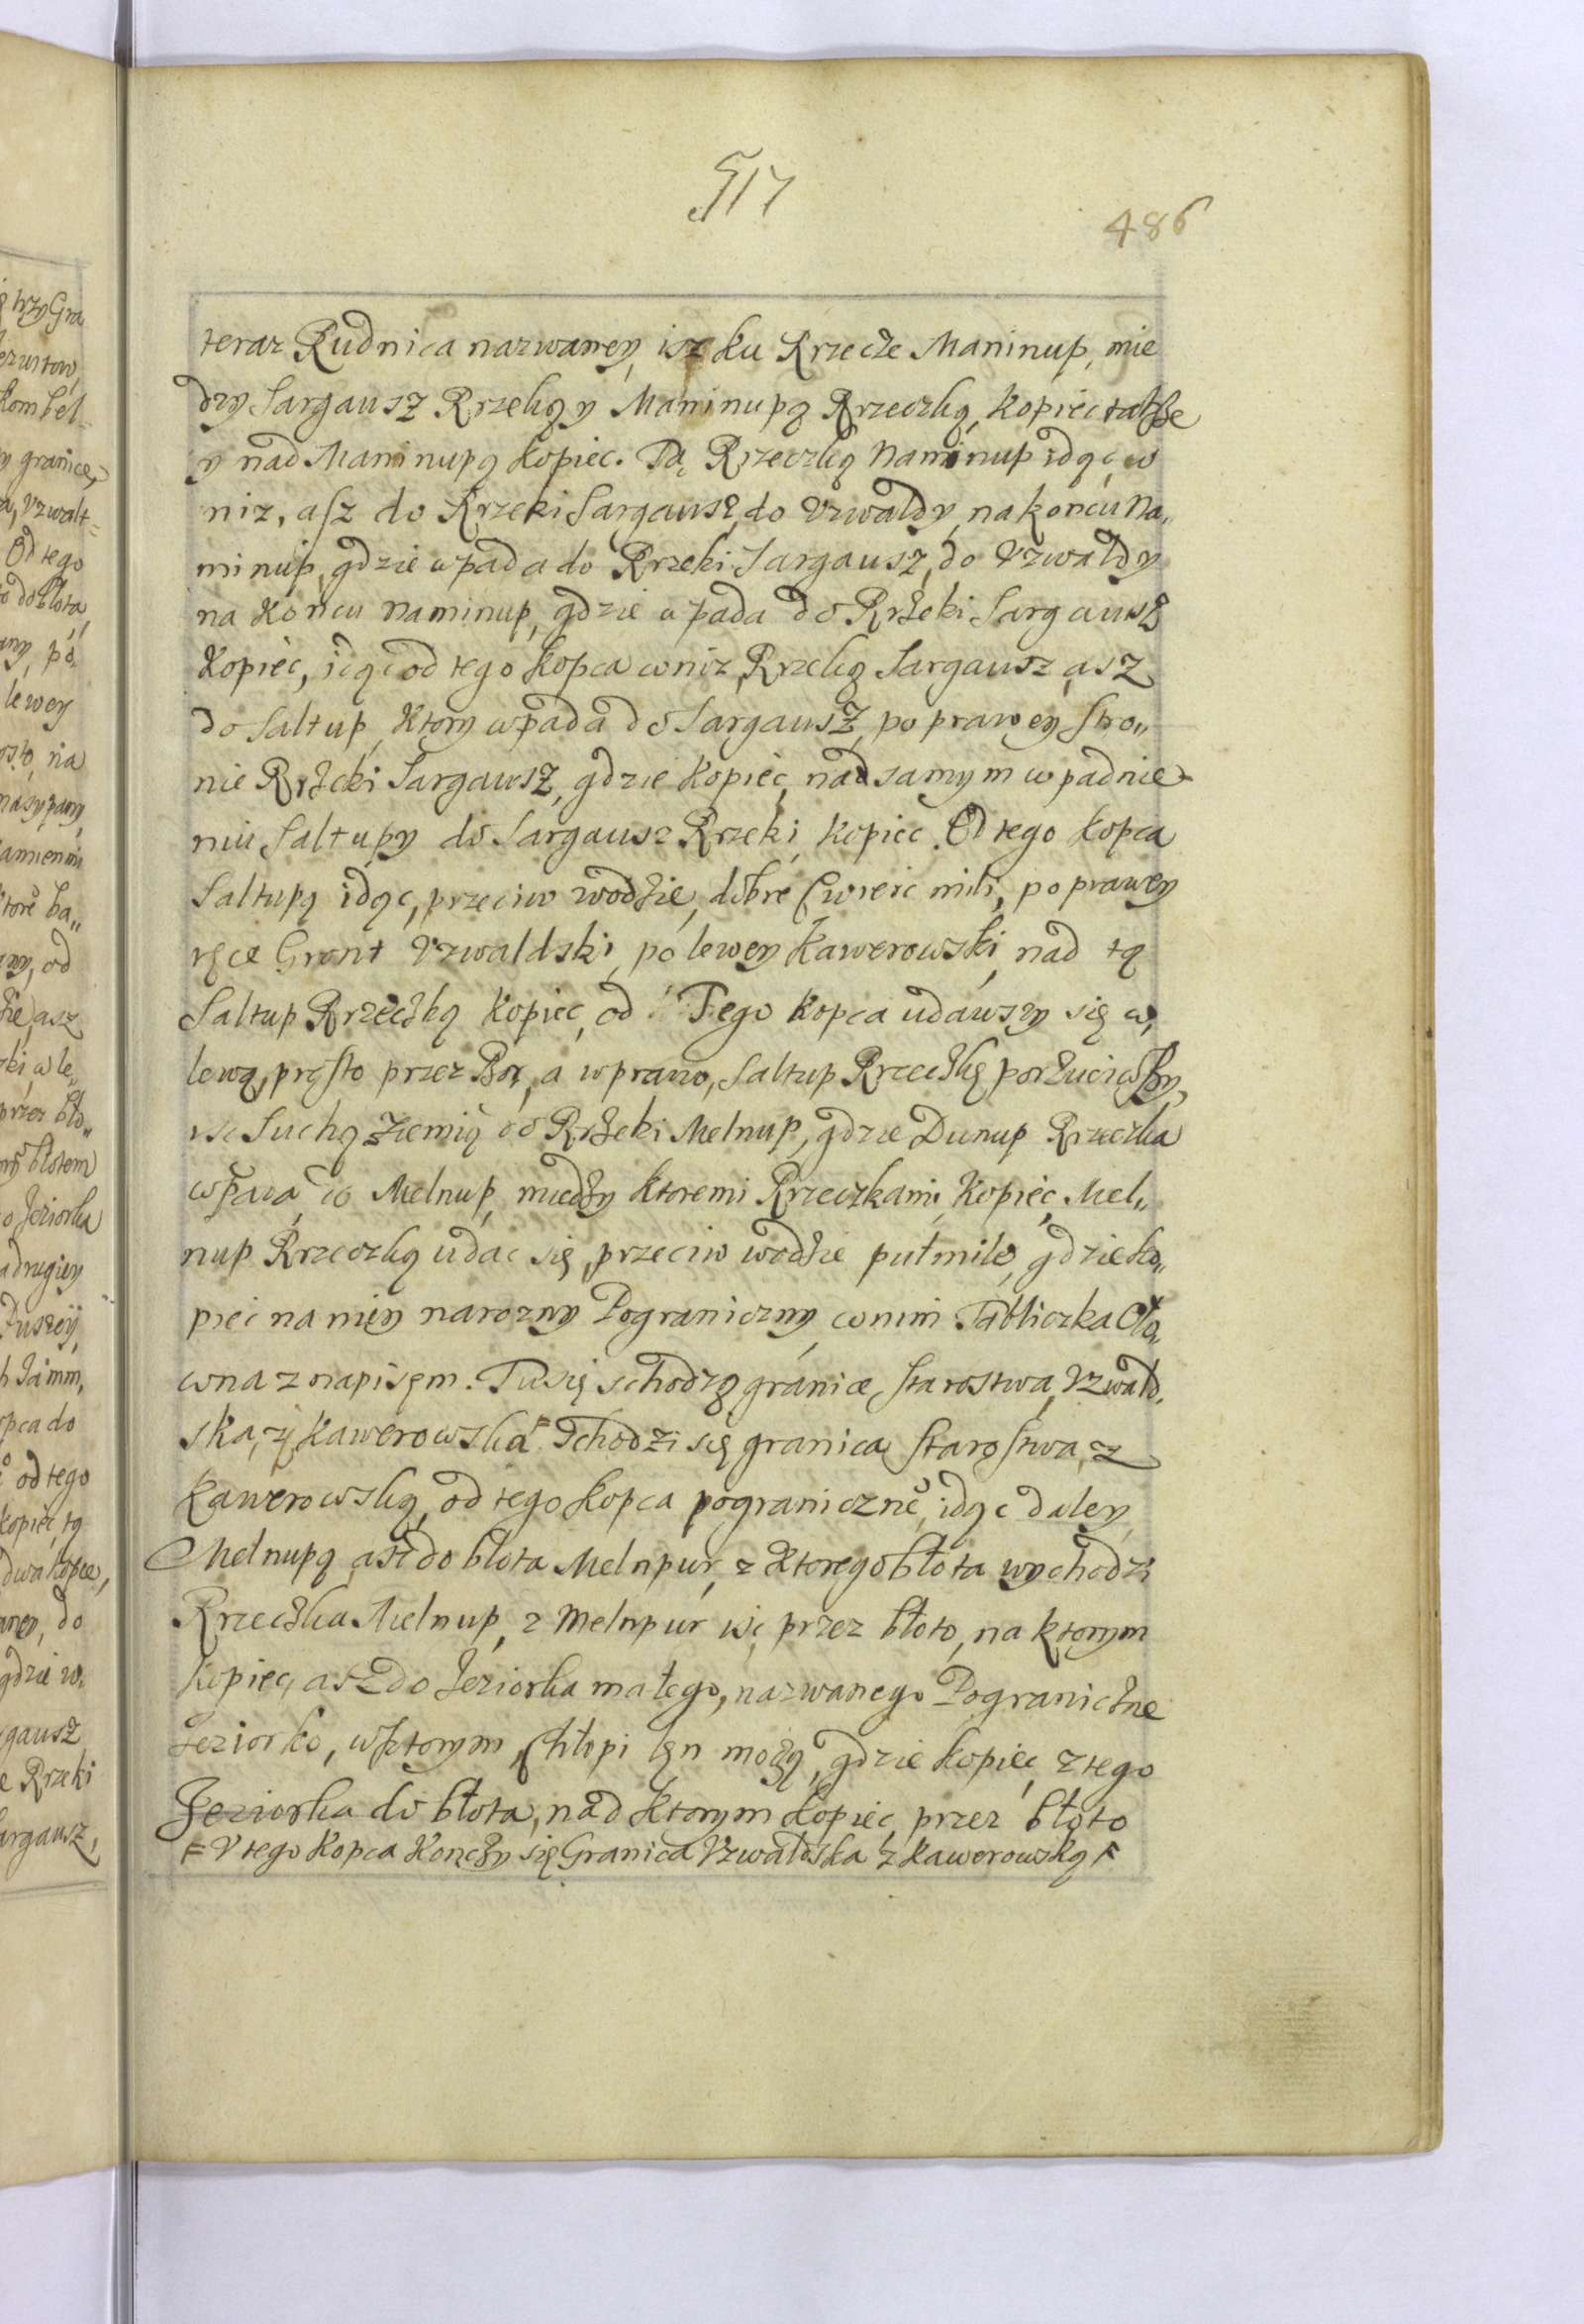 517
486
teraz Rudnica nazwaney, isz ku Rrzecze Maninup, mie
dzy Sargausz Rrzeką y Maninupą Rrzeczką, kopiec takze
y nad Maninupą kopiec. Tą Rrzeczką Naminup idąc w
niz, asz do Rrzeki Sargausz, do Vzwaldy, na koncu Na„
minup, gdzie wpada do Rrzeki Sargausz, do Vzwaldy
na koncu Naminup, gdzie wpada do Rrżeki Sargausz
Kopiec, idąc od tego kopca wniz Rrzeką Sargausz, asz
do Saltup, ktory wpada do Sargausz, po prawey stro„
nie Rrżeki Sargausz, gdzie kopiec, nad samym wpadnie-
niu Saltupy do Sargausz Rrzeki, kopiec. Od tego kopca
Saltupą idąc, przeciw wodzie, dobre cwierc mili, po prawey
ręce Gront Vzwaldski, po lewey Kawerowski, nad tą
Saltup Rrzeczką kopiec, od Tego kopca udawszy się w,
lewą, prosto przez Bor, a wprawo, Saltup Rrzeczkę porzuciwszy,
isc Suchą Ziemią do Rrżeki Melnup, gdzie Dunup Rrzeczka
wpada do Melnup, miedzy ktoremi Rrzeczkami, Kopiec, Mel„
nup Rrzeczką udac się, przeciw wodzie pułmile, gdzie ko„
piec na niey narozny Pograniczny, w nim Tabliczka Oło„
wna z napisęm. Tu się schodzą granice, Starostwa, Vzwald„
ska, y Kawerowska F Schodzi się granica Starostwa, z
Kawerowską, od tego kopca pograniczne, idąc daley,
Melnupą asz do błota Melnpur, z ktorego błota wychodzi
Rrzeczka Melnup, z Melnpur isc przez błoto, na ktorym
kopiec, asz do Jeziorka małego, nazwanego Pograniczne
Jeziorko, w ktorym, Chłopi lęn moczą, gdzie kopiec, z tego
Jeziorka do błota, nad ktorym kopiec, przez błoto
F V tego kopca Konczy się Granica Vzwaldska z Kawerowską F